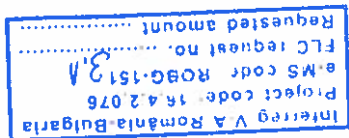 Interreg V A România Bulgaria
Project code 16.4.2.076
e-MS code ROBG-151
FLC request no. 3.1
Requested amount